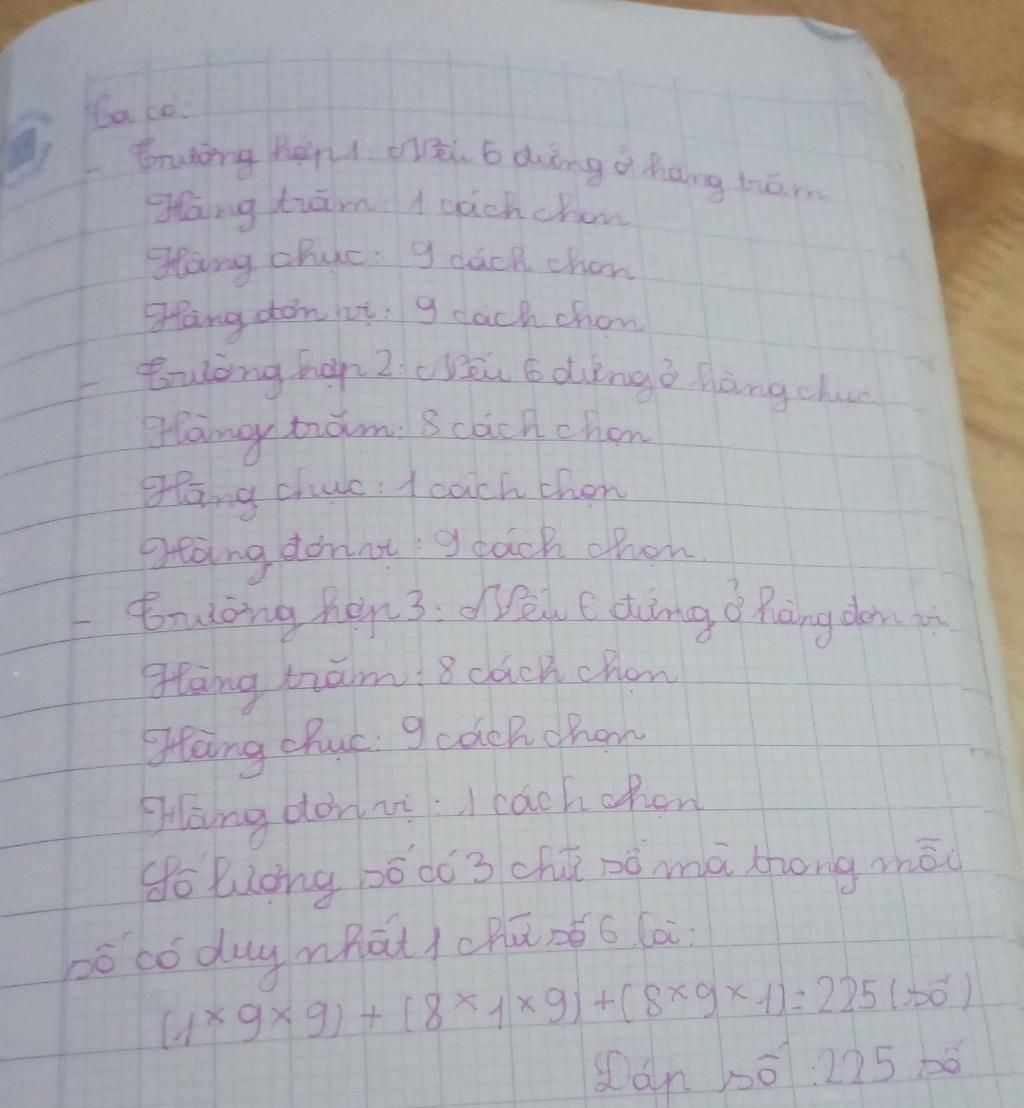 Ta có:
- Trường hợp 1: Nếu 6 đứng ở hàng trăm
Hàng trăm: 1 cách chọn
Hàng chục: 9 cách chọn
Hàng đơn vị: 9 cách chọn
- Trường hợp 2: Nếu 6 đứng ở hàng chục
Hàng trăm: 8 cách chọn
Hàng chục: 1 cách chọn
Hàng đơn vị: 9 cách chọn.
- Trường hợp 3: Nếu 6 đứng ở hàng đơn vị
Hàng trăm: 8 cách chọn
Hàng chục: 9 cách chọn
Hàng đơn vị: 1 cách chọn
Số lượng số có 3 chữ số mà trong mỗi
số có duy nhất 1 chữ số 6 là:
(1 × 9 × 9) + (8 × 1 × 9) + (8 × 9 × 1) = 225 (số)
Đáp số: 225 số